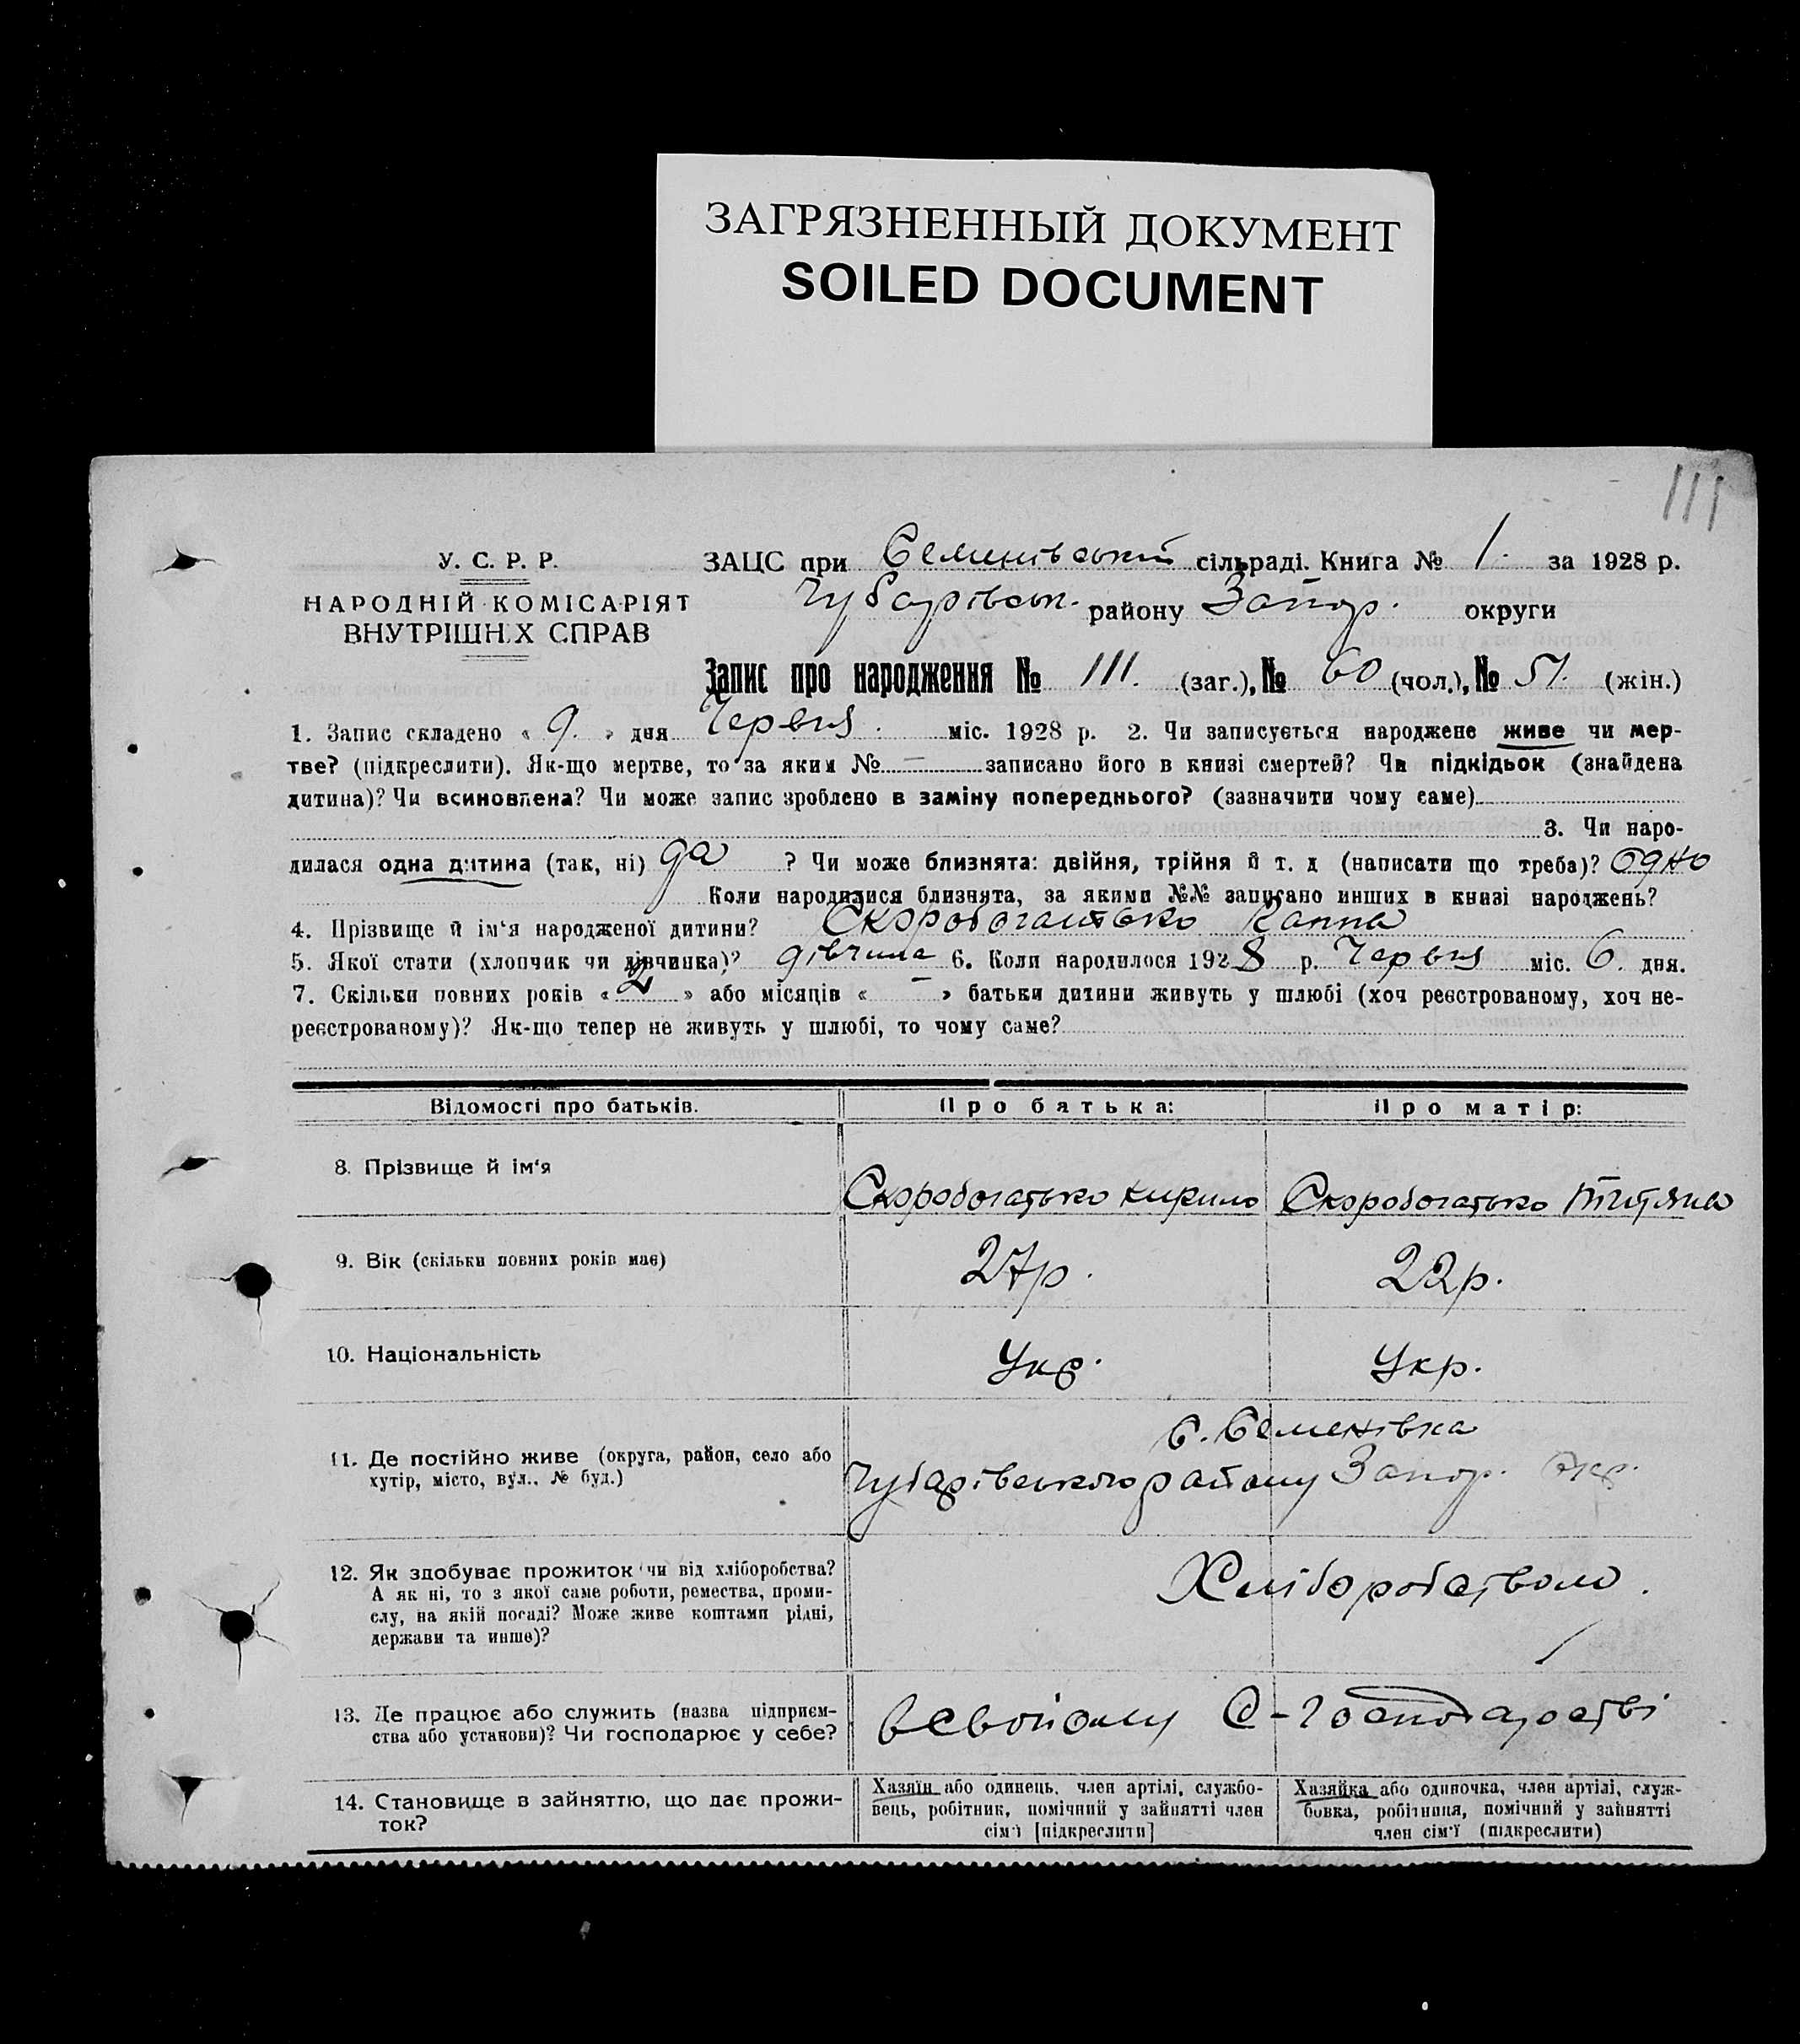 ЗАГРЯЗНЕННЫЙ ДОКУМЕНТ
SOILED DOCUMENT
111
У. С. Р. Р.
НАРОДНІЙ КОМІСАРІЯТ
ВНУТРІШНІХ СПРАВ
ЗАЦС при Семенівській сільраді. Книга № 1. за 1928 р.
Чубарівськ. району Запор. округи
Запис про народження № 111. (заг.), № 60 (чол.), № 51. (жін.)
1. Запис складено « 9. » дня Червня. міс. 1928 р. 2. Чи записується народжене живе чи мер-
тве? (підкреслити). Як-що мертве, то за яким № — записано його в книзі смертей? Чи підкідьок (знайдена
дитина)? Чи всиновлена? Чи може запис зроблено в заміну попереднього? (зазначити чому саме)
3. Чи наро-
дилася одна дитина (так, ні) да ? Чи може близнята: двійня, трійня й т. д (написати що треба)? одно
Коли народилися близнята, за якими №№ записано инших в книзі народжень?
4. Прізвище й ім'я народженої дитини? Скоробогатько Ганна
5. Якої стати (хлопчик чи дівчинка)? дівчина 6. Коли народилося 1928 р. Червня міс. 6. дня.
7. Скільки повних років « 2 » або місяців « — » батьки дитини живуть у шлюбі (хоч реєстрованому, хоч не-
реєстрованому)? Як-що тепер не живуть у шлюбі, то чому саме?
Відомості про батьків. Про батька: Про матір:
8. Прізвище й ім'я Скоробогатько Кирило Скоробогатько Титяна
9. Вік (скільки повних років має) 27р. 22р.
10. Національність Укр. Укр.
11. Де постійно живе (округа, район, село або
хутір, місто, вул., № буд.)
С. Семенівка
Чубарівського району Запор. Окр.
12. Як здобуває прожиток (чи від хліборобства?
А як ні, то з якої саме роботи, ремества, проми-
слу, на якій посаді? Може живе коштами рідні,
держави та инше)?
Хліборобством.
13. Де працює або служить (назва підприєм-
ства або установи)? Чи господарює у себе?
В свойому С-господарстві
14. Становище в зайняттю, що дає прожи-
ток?
Хазяїн або одинець, член артілі, службо-
вець, робітник, помічний у зайнятті член
сім'ї [підкреслити]
Хазяйка або одиночка, член артілі, служ-
бовка, робітниця, помічний у зайнятті
член сім'ї (підкреслити)